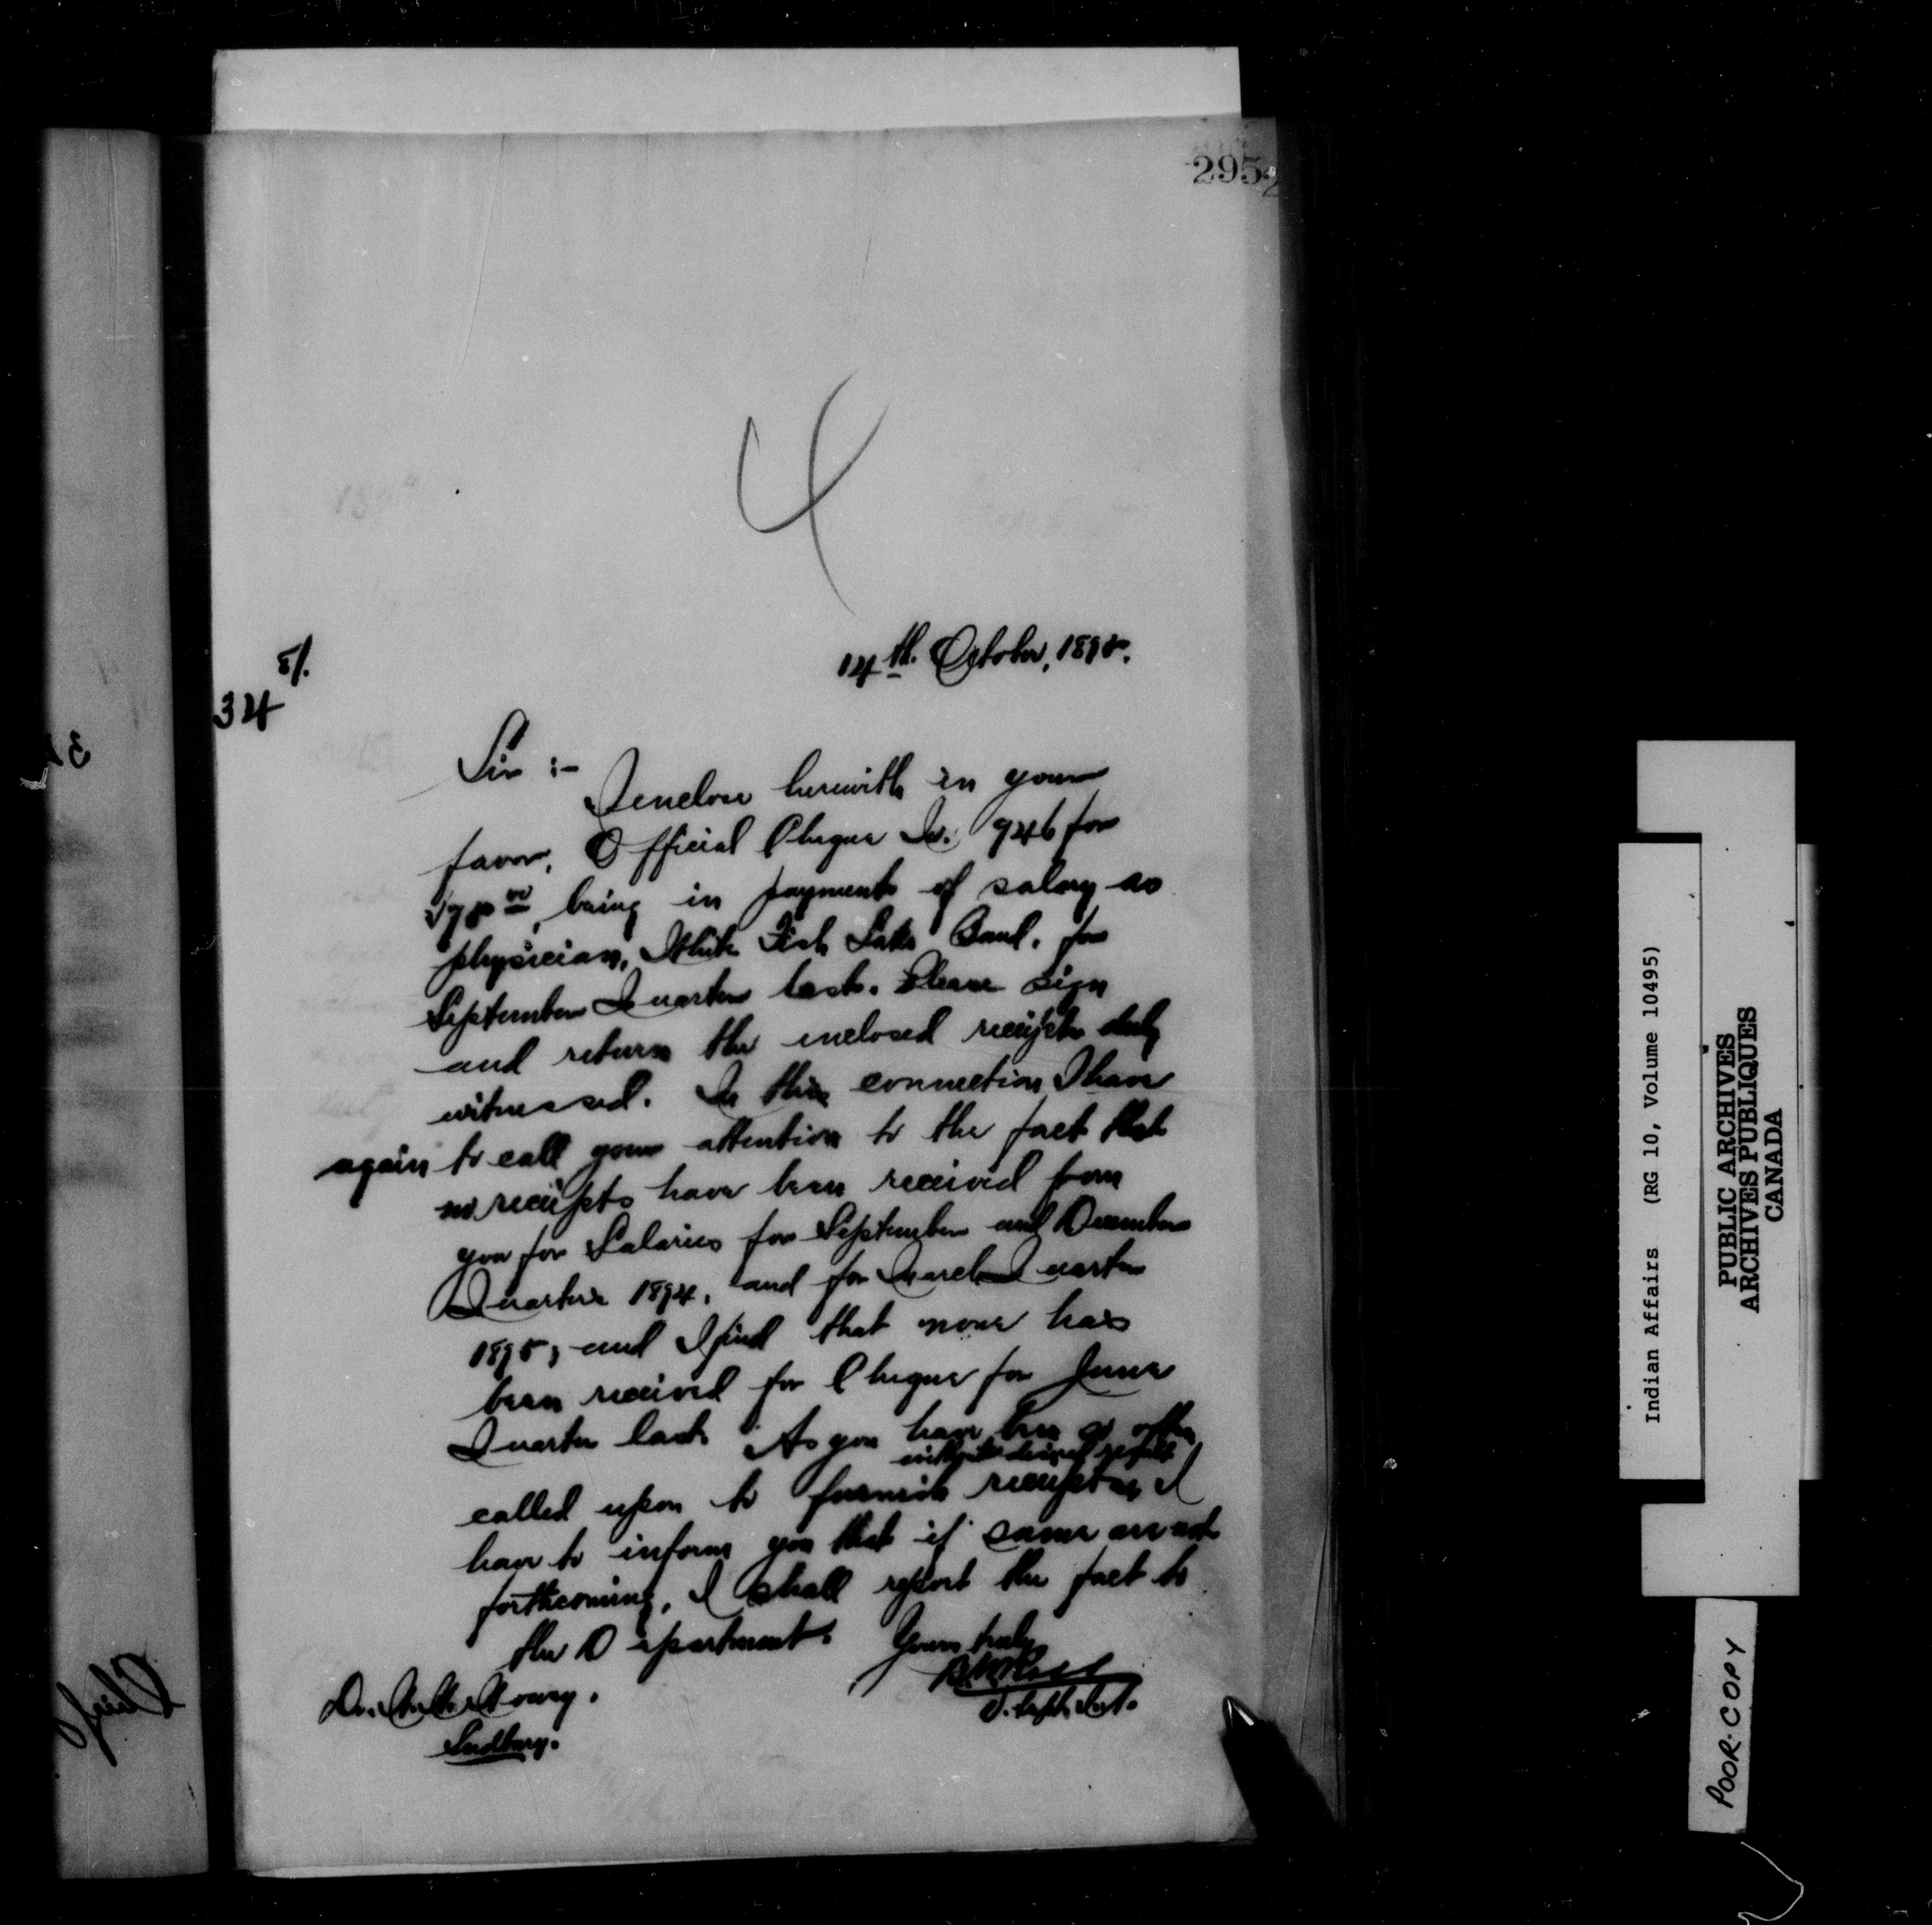 295
4
14th. October, 1895.
34
Sir :-
I enclose herewith in your
favor, Official Cheque No. 946 for
being in payment of salary as
physician, White Fish Lake Band, for
September Quarter last. Please sign
and return the inclosed receipts duly
witnessed. In this connection I have
again to call your attention to the fact that
no receipts have been received from
you for Salaries for September and December
Quarters 1894, and for March Quarter
1895, and I find that none has
been received for Cheque for June
Quarter last. As you have been so often
without desired result
called upon to furnish receipts, I
have to inform you that if same are not
forthcoming, I shall report the fact to
the Department.
Yours truly
Dr. Howey.
Sudbury.
Indian Affairs (RG 10, Volume 10495)
PUBLIC ARCHIVES
ARCHIVES PUBLIQUES
CANADA
POOR COPY